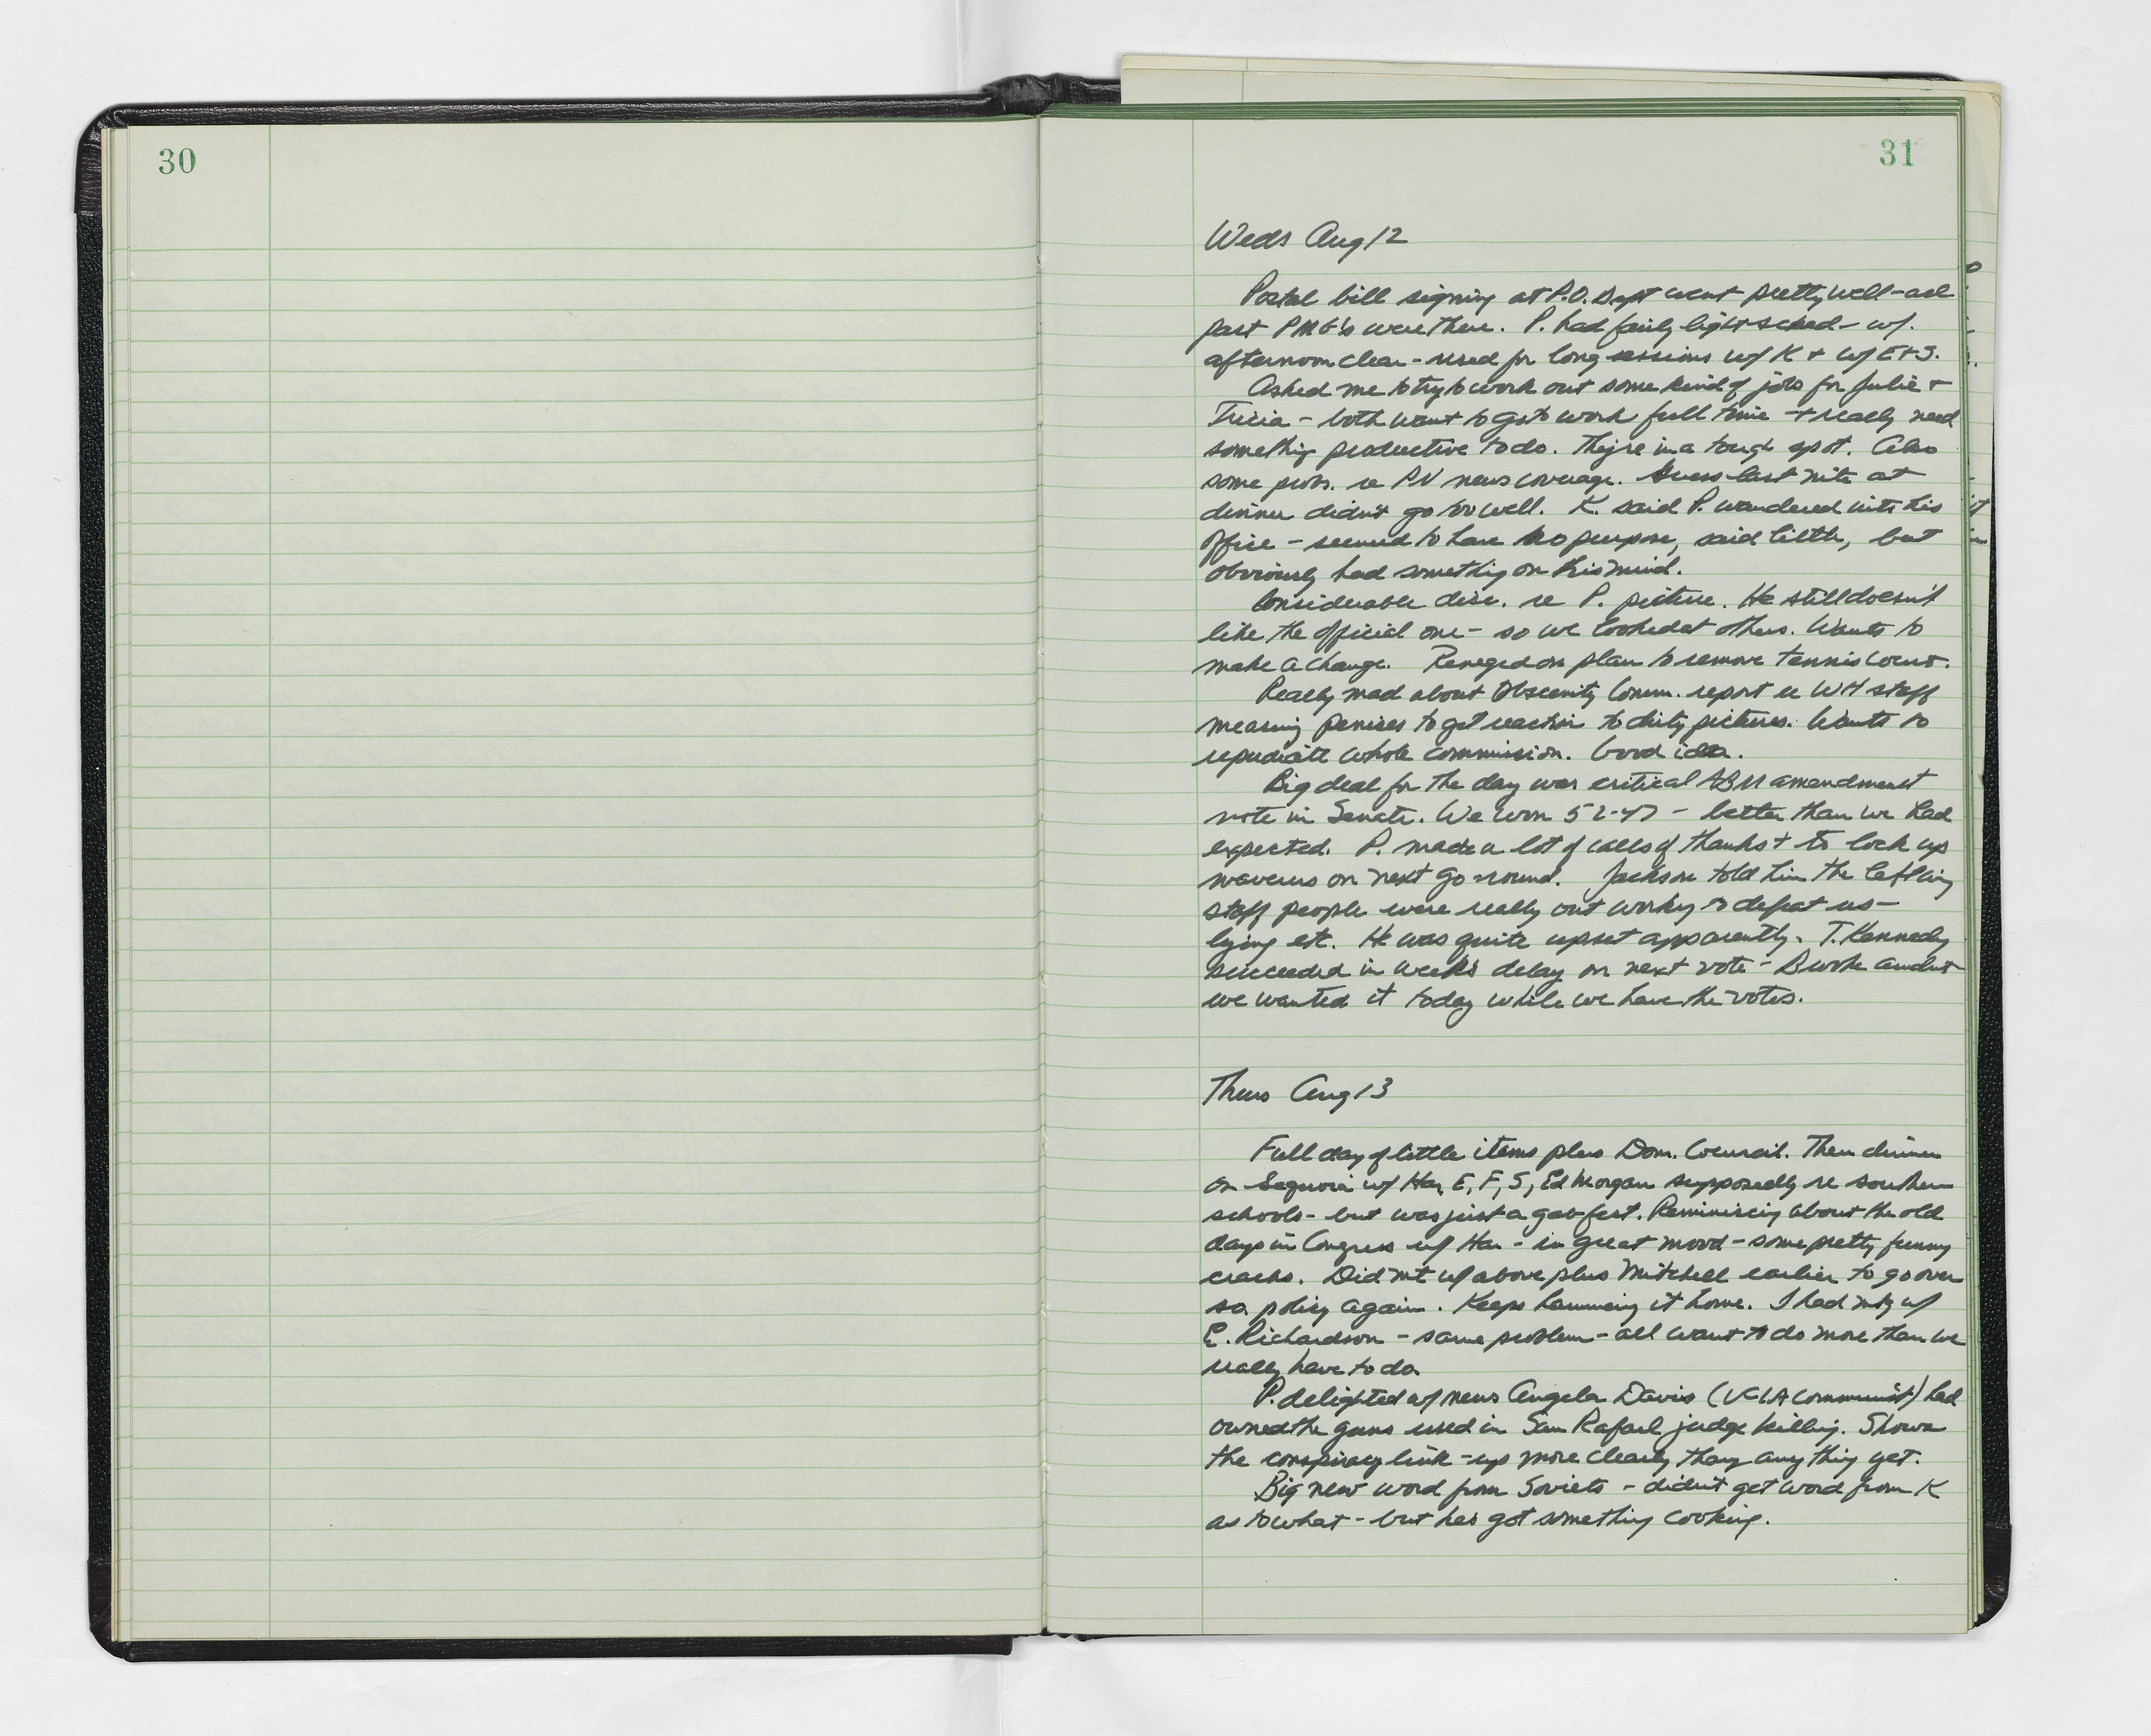 30
31
Weds Aug 12
Postal bill signing at P.O. Dept went pretty well - all
past PMG's were there. P. had fairly light sched - w/.
afternoon clear - used for long sessions w/ K + w/ E+S.
Asked me to try to work out some kind of jobs for Julie +
Tricia - both want to go to work full time - + really need
something productive to do. They're in a tough spot. Also
some probs. re PN news coverage. Guess last nite at
dinner didn't go too well. K. said P. wandered into his
office - seemed to have no purpose, said little, but
obviously had something on his mind.
Considerable disc. re P. picture. He still doesn't
like the official one - so we looked at others. Wants to
make a change. Reneged on plan to remove tennis court.
Really mad about Obscenity Comm. report re WH staff
measuring penises to get reaction to dirty pictures. Wants to
repudiate whole commission. Good idea.
Big deal for the day was critical ABM amendment
vote in Senate. We won 52-47 - better than we had
expected. P. made a lot of calls of thanks + to lock up
waverers on next go-round. Jackson told him the left wing
staff people were really out working to defeat us -
lying etc. He was quite upset apparently. T. Kennedy
succeeded in week's delay on next vote - Brooke amdmt
we wanted it today while we have the votes.
Thurs Aug 13
Full day of little items plus Dom. Council. Then dinner
on Sequoia w/ Har, E, F, S, Ed Morgan supposedly re southern
schools - but was just a gab-fest. Reminiscing about the old
days in Congress w/ Har - in great mood - some pretty funny
cracks. Did mt w/ above plus Mitchell earlier to go over
so. policy again. Keeps hammering it home. I had mtg w/
E. Richardson - same problem - all want to do more than we
really have to do.
P. delighted w/ news Angela Davis (UCLA communist) had
owned the guns used in San Rafael judge killing. Shows
the conspiracy link-up more clearly than any thing yet.
Big new word from Soviets - didn't get word from K
as to what - but he's got something cooking.